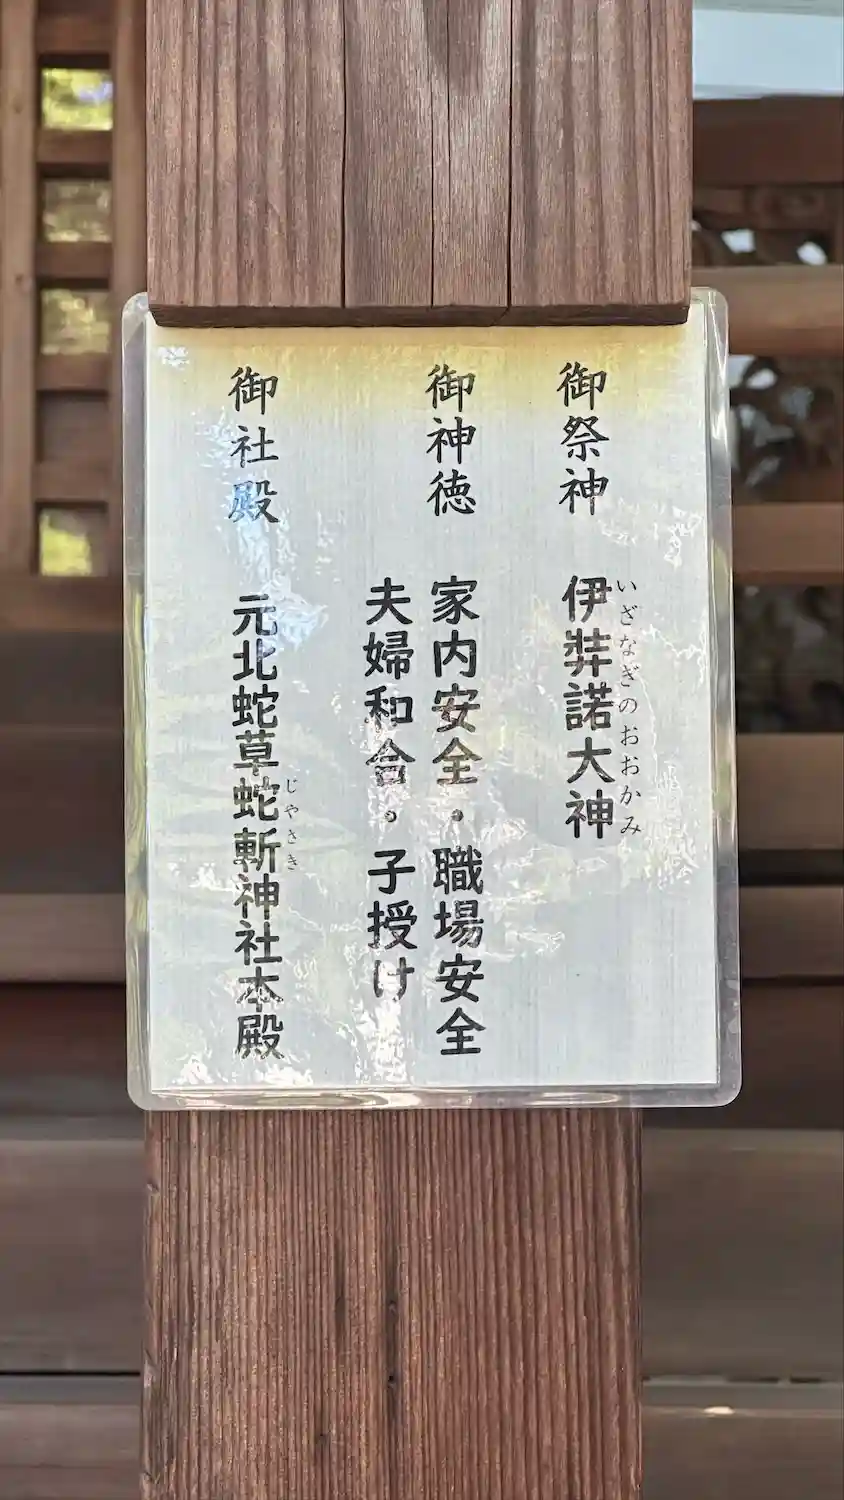 御祭神 伊弉諾大神
いざなぎのおおかみ
御神徳 家内安全・職場安全
夫婦和合・子授け
御社殿 元北蛇草蛇斬神社本殿
じゃさき